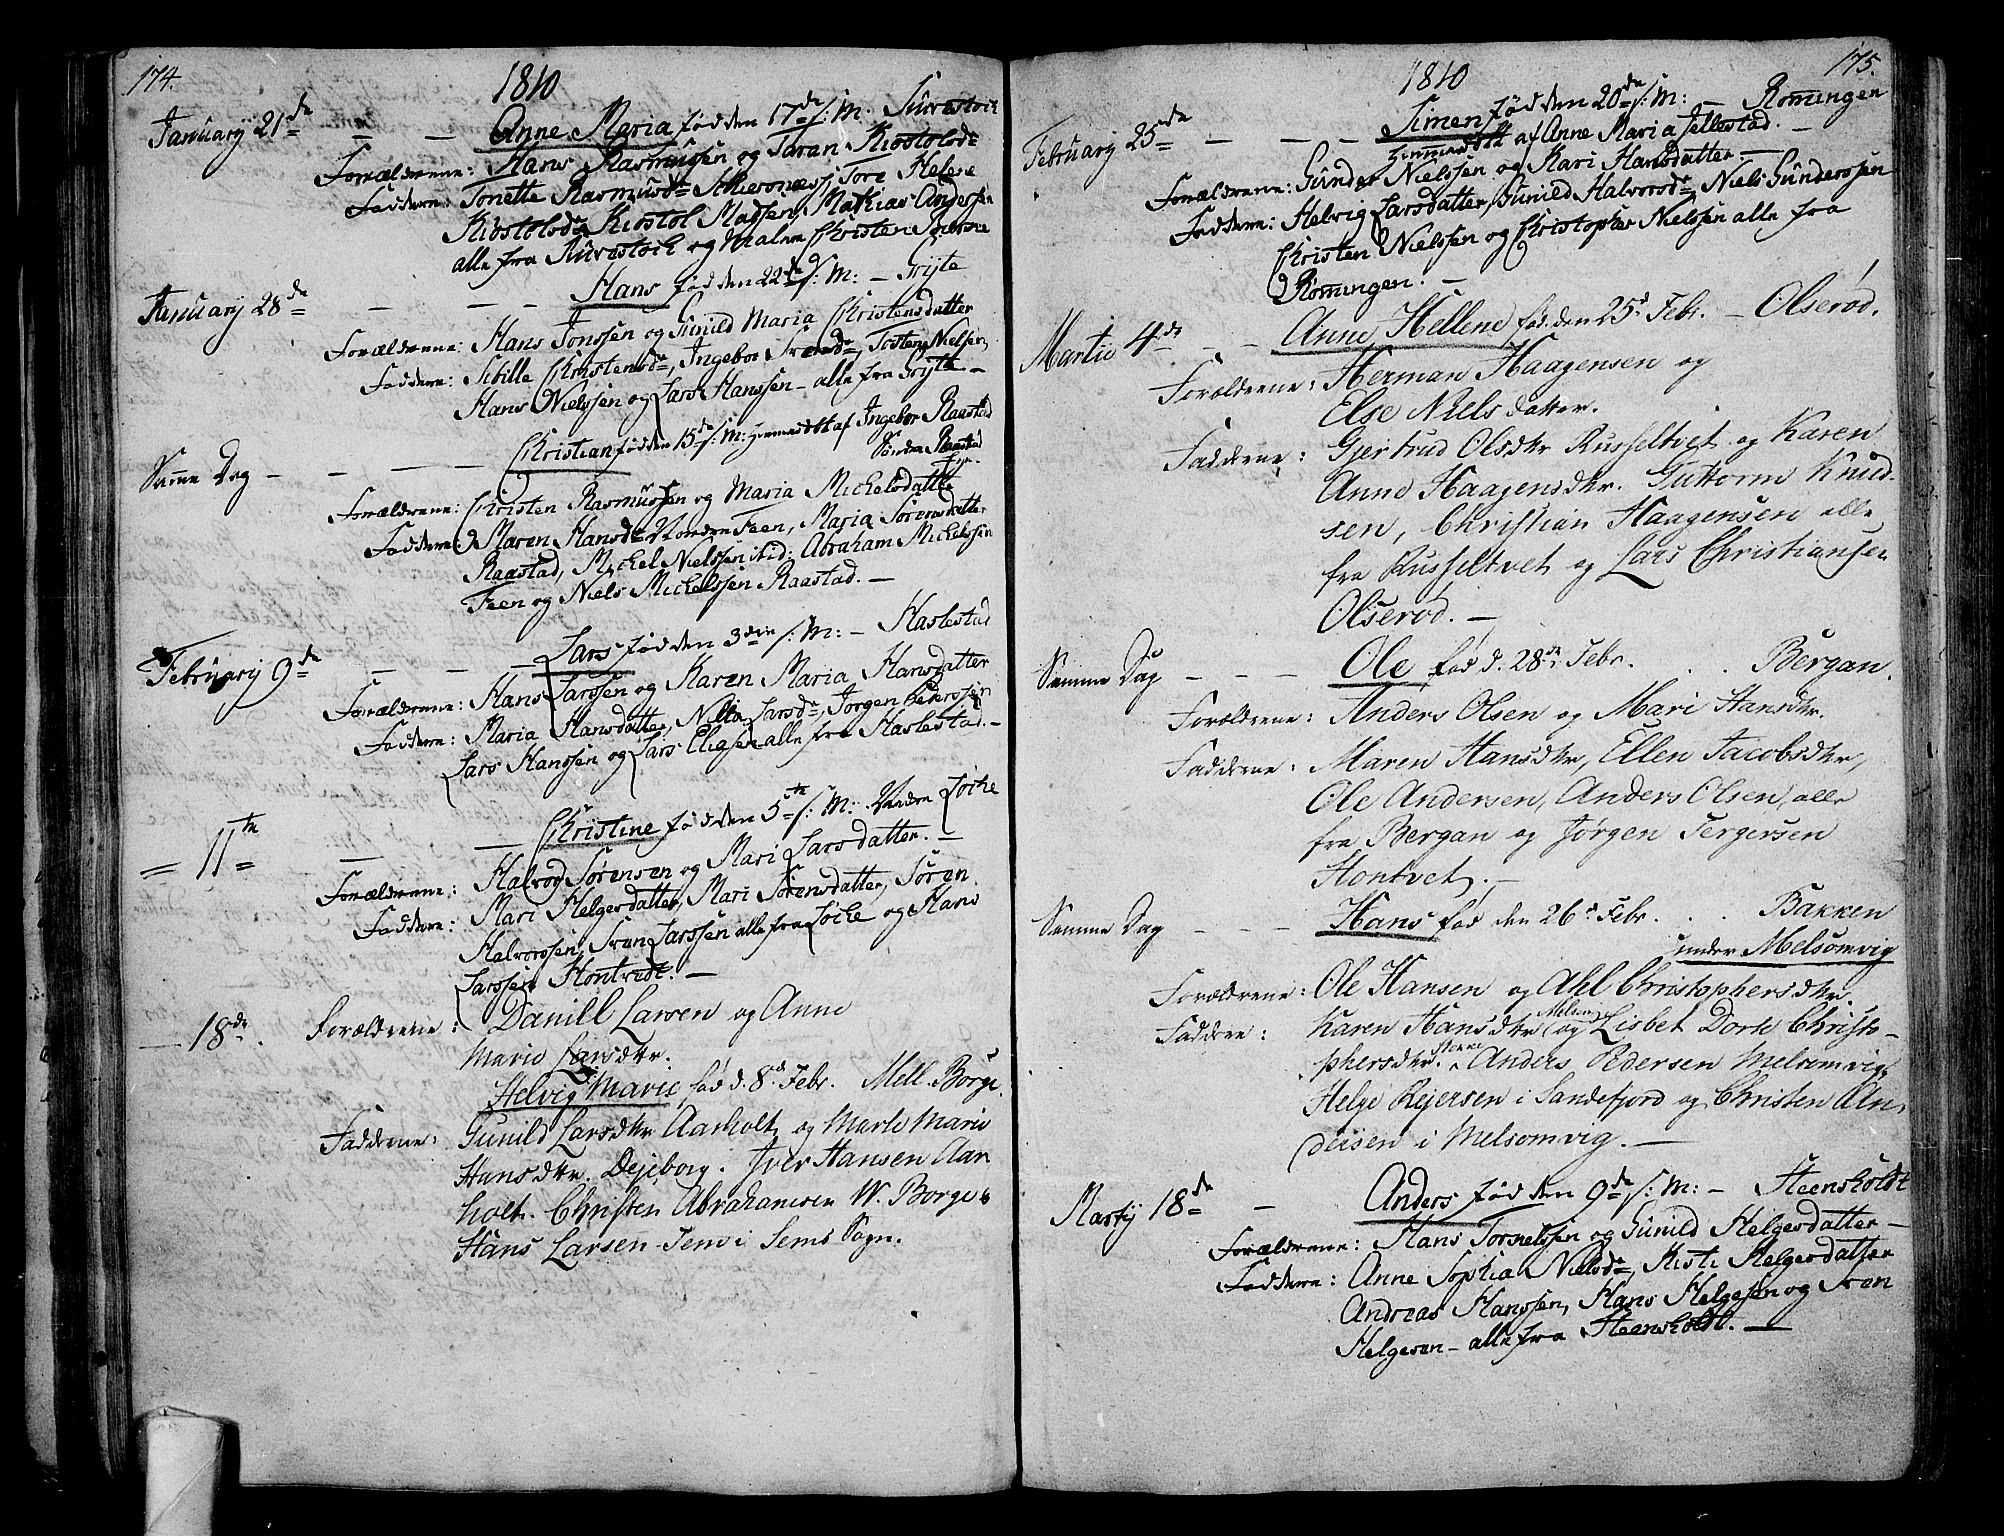 174.
1810
Januarij 21de — — Anne Maria fød den 17de s: M.
Forældrene: Hans Rasmussen og Taran Kiostolsdr
Fadderne: Tonette Rasmusdr Tore Helene
Kiostolsdr Kiostol Madsen, Mathias Andersen
alle fra og Malene Christen
Januarij 28de — — — Hans fød den 22de s: M: — Gryte
Forældrene: Hans Jonssen og Gunild Maria Christensdatter
Fadderne: Sibille Christensdr, Ingebor Svendr, Tosten Nielsen,
Hans Nielssen og Lars Hanssen — alle fra Gryte. —
Christian fød den 15de s: M: hiemmedøbt af Ingebor Raastad
Samme Dag — — — — — Søndre Raastad
Forældrene: Christen Rasmussen og Maria Michelsdatter
Fadderne: Maren Hansdr Nordre Feen, Maria Sørensdatter
Raastad, Michel Nielssen ibid: Abraham Michelssen
Feen og Niels Michelssen Raastad. —
Februarij 9de — — — Lars fød den 3die s: M: — Haslestad
Forældrene: Hans Larssen og Karen Maria Hansdatter
Fadderne: Maria Hansdatter, Nilla Larsdr, Jørgen Pederssen
Lars Hanssen og Lars Eliasen alle fra Haslestad. —
= 11te — — Christine fød den 5te s: M: Nordre Løcke
Forældrene: Halvor Sørensen og Mari Larsdatter. —
Fadderne: Mari Helgesdatter, Mari Sørensdatter, Søren
Halvorssen, Svan Larssen alle fra Løcke og Hans
Larssen Hontvedt. —
— 18de. Forældrene: Daniell Larsen og Anne
Marie Larsdtr.
Helvig Marie fød d. 8d Febr. Mell. Borge.
Fadderne: Gunild Larsdtr Aarholt, og Marte Marie
Hansdtr. Dejeborg. Iver Hansen Aar
holt. Christen Abrahamsen W. Borge &
Hans Larsen Jem i Sems Sogn.
175.
1810
Februarij 25de — — — Simen fød den 20de s: M: — Romingen
hiemmedøbt af Anne Maria Jellestad. —
Forældrene: Gunder Nielssen og Kari Hansdatter. —
Fadderne: Helvig Larsdatter, Gunild Halvorsdr, Niels Gunderssen
Christen Nielssen og Christopher Nielssen alle fra
Romingen. —
Martii 4de — — Anne Hellene fød den 25d Febr. — Olserød.
Forældrene: Herman Haagensen og
Else Nielsdatter.
Fadderne: Gjertrud Olsdtr Russeltvet og Karen
Anne Haagensdtr. Guttorm Knud-
sen, Christian Haagensen alle
fra Russeltvet og Lars Christiansen
Olserød. —
Samme Dag — — — Ole fød d. 28de Febr. . . Bergan.
Forældrene: Anders Olsen og Mari Hansdtr.
Fadderne: Maren Hansdtr, Ellen Jacobsdtr,
Ole Andersen, Anders Olsen, alle
fra Bergan og Jørgen Tergersen
Hontvet. —
Samme Dag — — — Hans fød den 26d Febr. . . Bakken
under Melsomvig
Forældrene: Ole Hansen og Ahl Christophersdtr.
Faddere: Karen Hansdtr Melsomv. og Lisbet Dorte Christo-
phersdtr. Anders Pedersen Melsomvig,
Helge Rejersen i Sandefjord og Christen An-
dersen i Melsomvig. —
Martij 18de — Anders fød den 9de s: M: — Steensholdt
Forældrene: Hans Tornelssen og Gunild Helgesdatter —
Fadderne: Anne Sophia Nielsdr, Kisti Helgesdatter
Andreas Hanssen, Hans Helgesen og Svan
Helgesen — alle fra Steensholdt. —